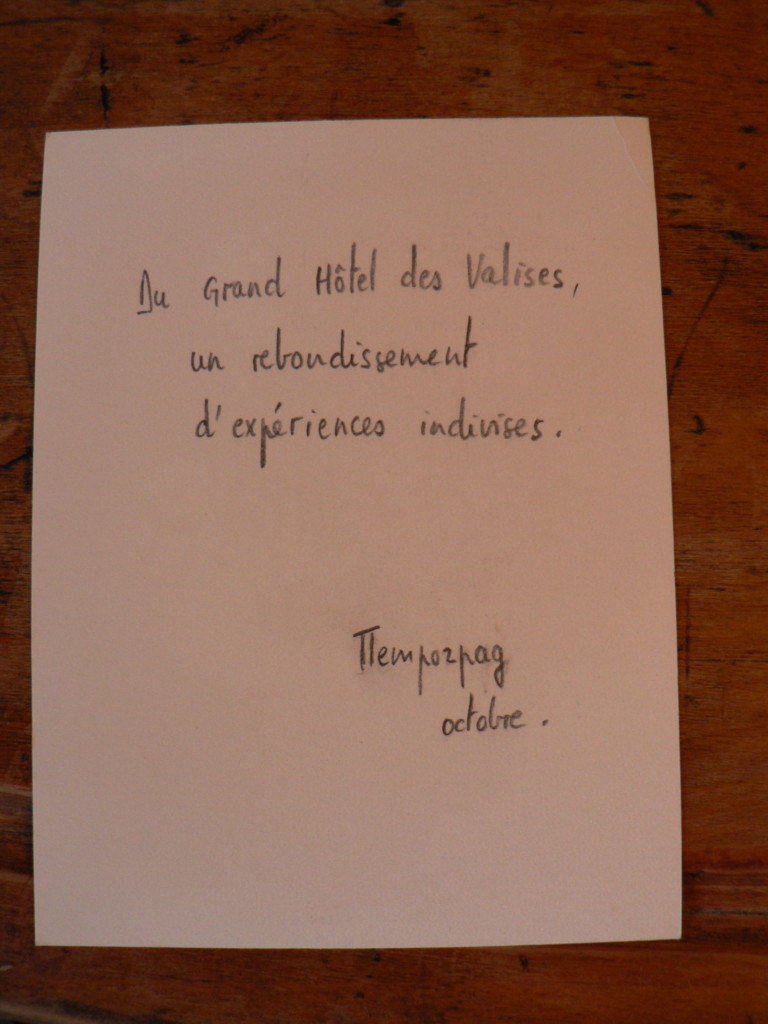 Du Grand Hôtel des Valises,
un rebondissement
d'expériences indivises.
Петроград
octobre.